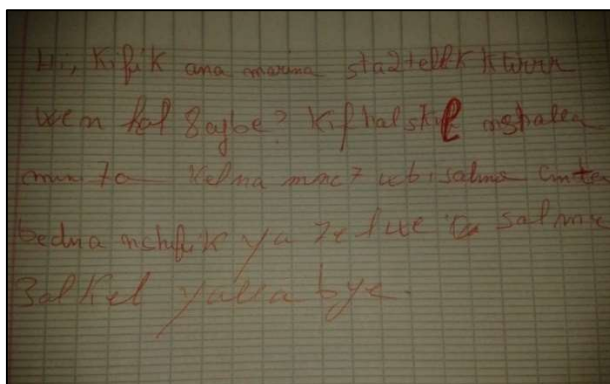 Hi, Kifik ana marina sta2tellkk ktirrr
wen hal 8aybe? Kifhal shi nshalla
mn7a Kelna mne7 web isalma
bedna nshufik ya ze2we salme
3al Kel yalla bye.